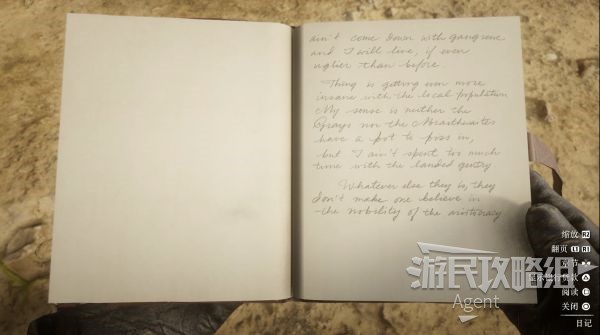 ain't come down with gangrene
and I will live, if even
uglier than before.
Thing is getting even more
insane with the local population
My sense is neither the
Grays nor the Braithwaites
have a pot to piss in,
but I ain't spent too much
time with the landed gentry
Whatever else they is, they
don't make one believe in
the nobility of the aristocracy
缩放 R2
翻页 L1 R1
阅读
关闭
日记
游民攻略组
Agent